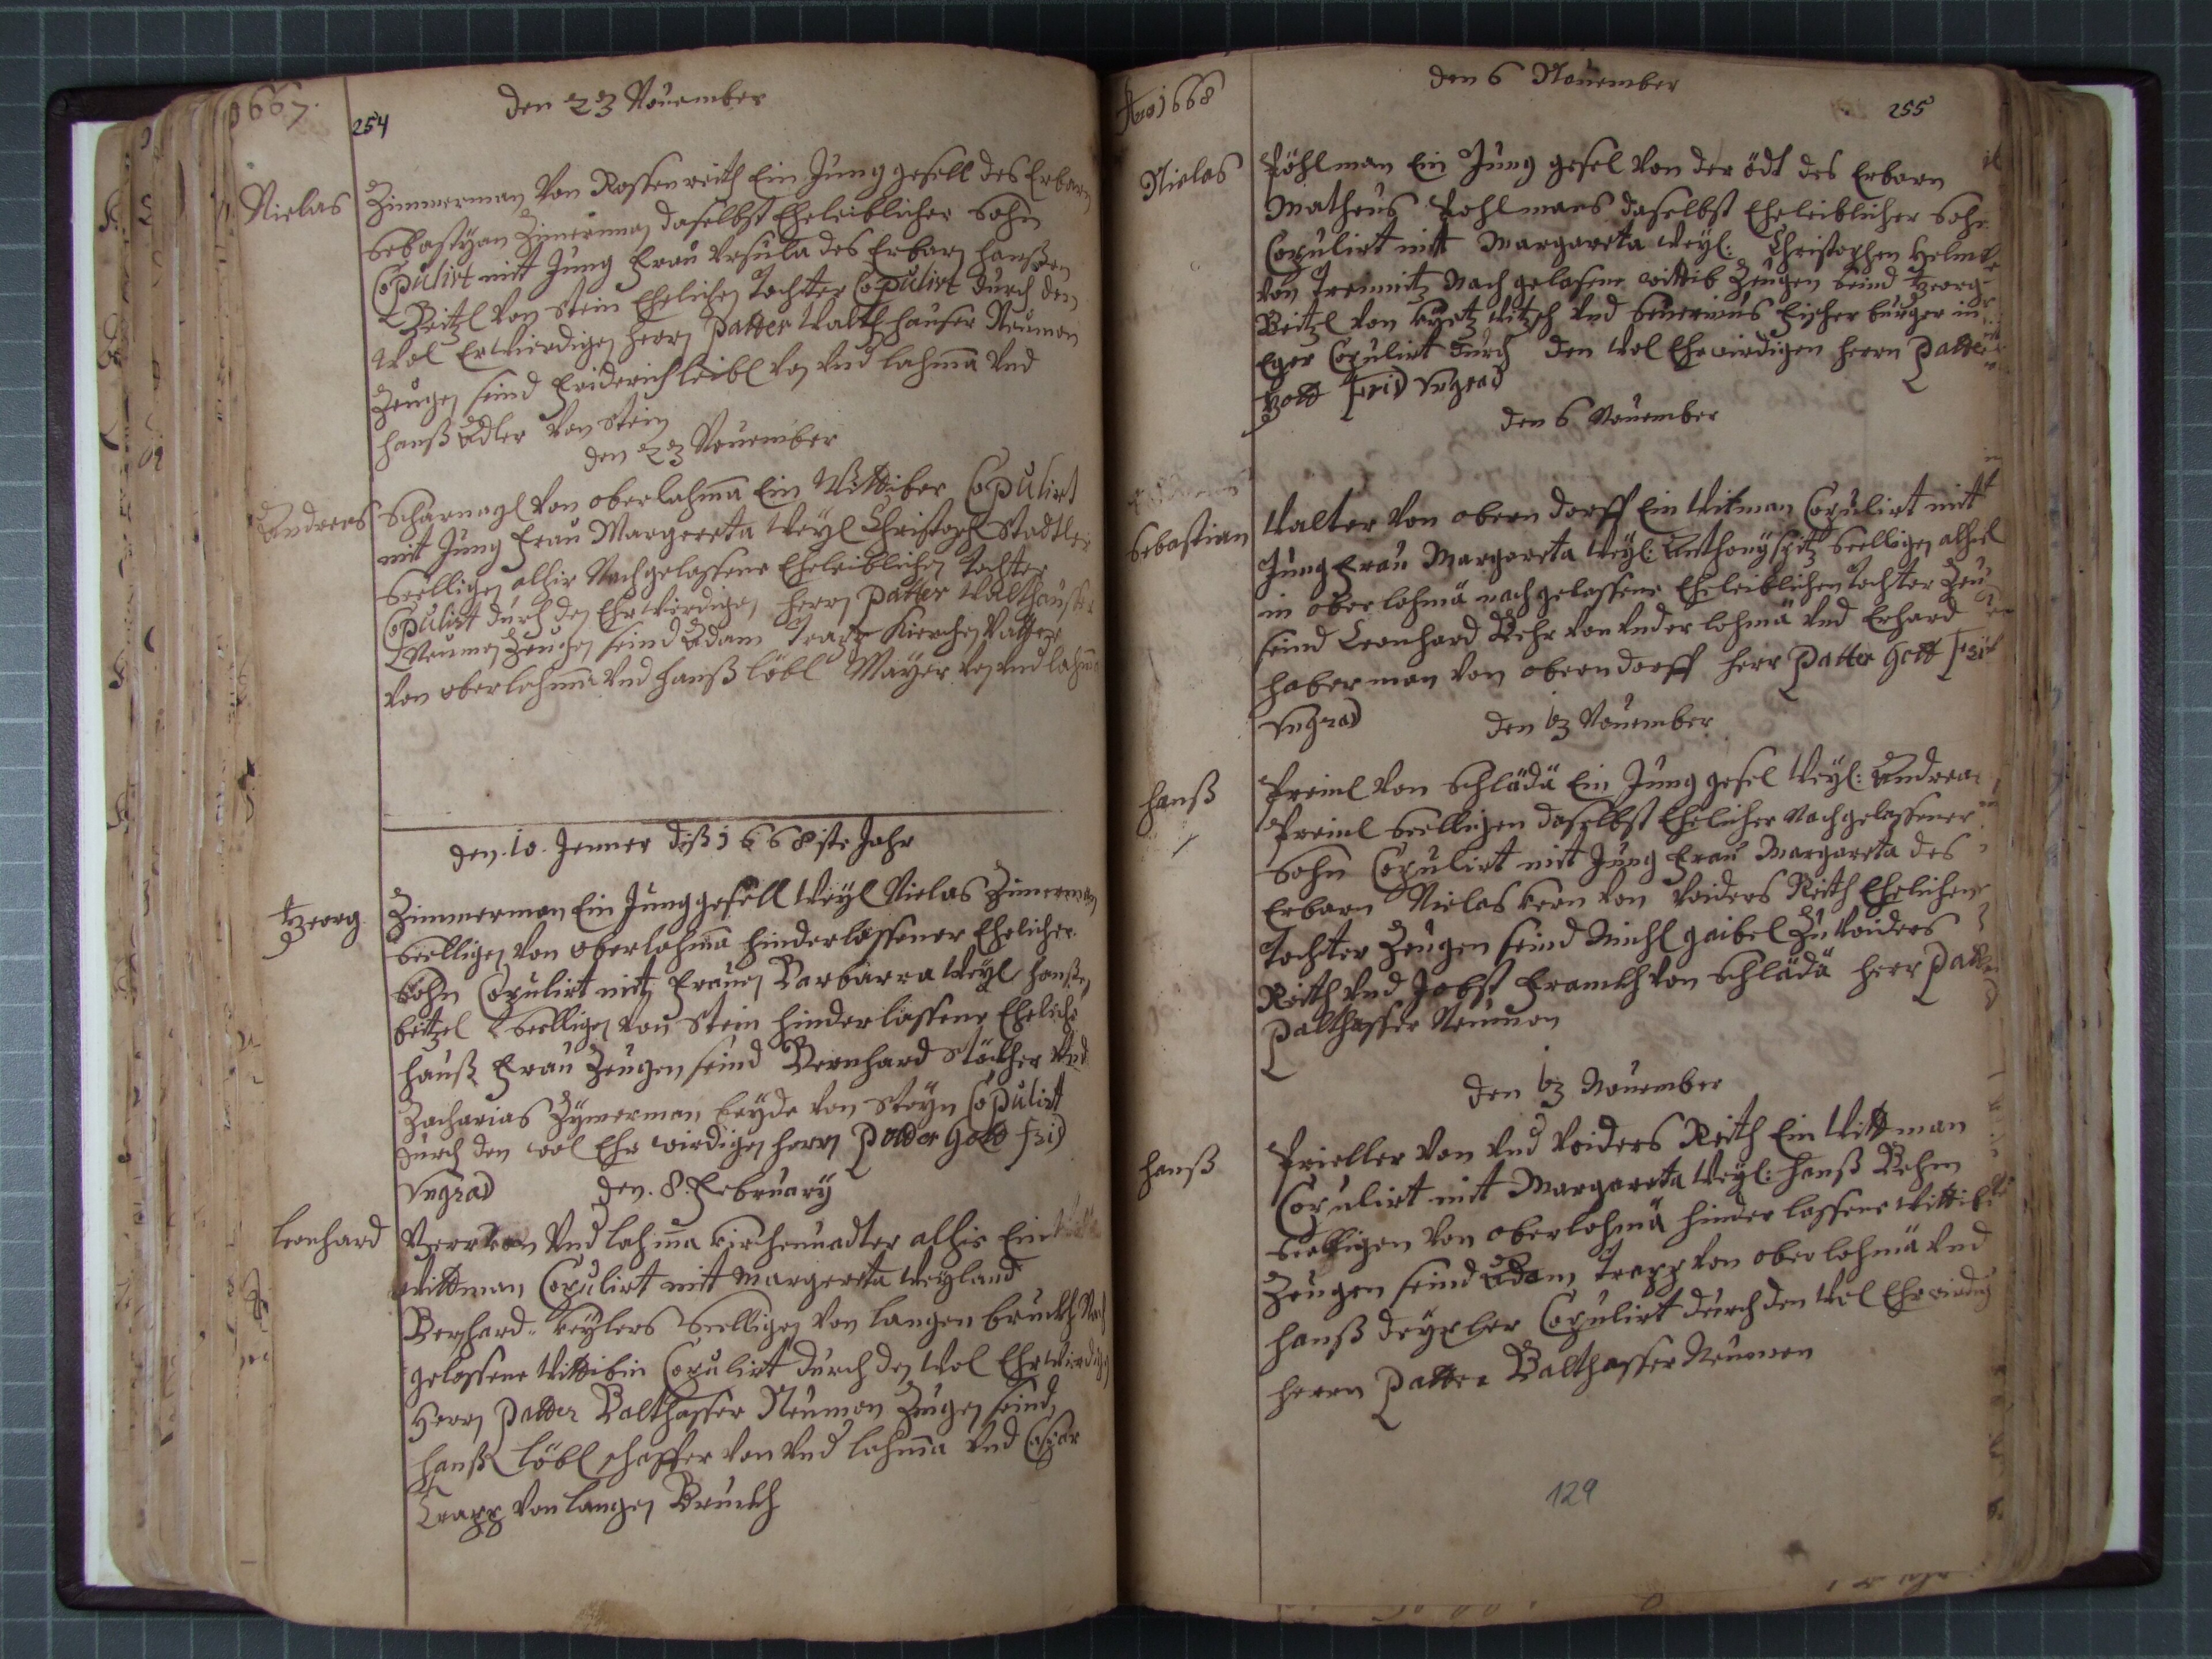 1667.
254
den 23 November
Niclas Zimmerman von Rossenreith Ein Jung gesell des Erbarn
Sebastÿan Zimerman daselbst Eheleiblicher Sohn
Copulirt mit Jung Frau Ursula des Erbarn Hanßen
Beitzl von Stein Ehelichen Tochter Copulirt durch den
Wol Erwirdigen Herrn Patter Walthauser Neuman
Zeugen seind Friderich Leibl von Und Lahma Und
Hanß Adler von Stein
den 23 November
Andreas Scharnagl von Oberlahma Ein Wittiber Copulirt
mit Jung Frau Margereta Weyl Christoph Stadtler
Seelligen alhir Nachgelassene Eheleiblichen Tochter
Copulirt durch den Ehrwirdigen Herrn Patter Walthauser
Neuman Zeugen seind Adam Trapp Kirchen Vatter
von Oberlohma Und Hanß Löbl Mayer von Und Lohma
den .10. Jenner diß 1668iste Jahr
Georg Zimmerman Ein Junggesell Weyl Niclas Zimerman
Seelligen von Oberlohma Hinderlassener Ehelicher
Sohn Copulirt mit Frauen Barbarra Weyl Hanßen
Beitzel Seelligen von Stein Hinderlassene Eheliche
Hauß Frau Zeugen seind Bernhard Stöcher Und
Zacharias Zÿmerman beyde von Steyn Copulirt
durch den wol Ehrwirdigen Herrn Patter Gott frid
Ungrad den .8. February
Leonhard von Und Lahma Kirchenvadter alhir Ein
Wittman Copulirt mit Margereta Weyland
Bernhard Keylers Seelligen von Langenbruckh Nach
gelassene Wittibin Copulirt durch den Wol Ehrwirdigen
Herrn Patter Balthasser Neuman Zeugen seind
Hanß Löbl schaffer von Und Lohma Und Caspar
Trapp von Langen Bruckh
Ano 1668
den 6 November
255
Niclas Pöhlman Ein Jung gesel von der ödt des Erbarn
Matheus Pohlmans daselbst Eheleiblicher Sohn
Copulirt mitt Margareta Weyl: Christophen Helm
von Trennitz Nachgelasene wittib Zeugen seind Georg
Beitzl von Und Severinus Fischer burger in
Eger Copulirt durch den Wol Ehrwirdigen Herrn Patter
Gott frid Ungrad
den 6 November
Sebastian Walter von Oberndorff Ein Witman Copulirt mitt
Jung Frau Margareta Weyl: Anthony Seelligen alhie
in Oberlohma nachgelassene Eheleiblichen Tochter Zeu
seind Leonhard Behr von Under lohma Und Erhard
Haberman von Oberndorff Herr Patter Gott frid
Ungrad den 13 November
Hanß Preinl von Schlädä Ein Jung gesel Weyl: Andrea
Preinl Seelligen daselbst Ehelicher Nachgelassener
Sohn Copulirt mit Jung Frau Margareta des
Erbarn Niclas Kern von Voiders Reith Ehelichen
Tochter Zeugen seind Michl Gaibel Zu Voiders
Reith Und Jobst Franckh von Schlädä Herr Patter
Palthasser Neuman
den 13 November
Hanß Prieller von Und Voiders Reith Ein Wittman
Copulirt mit Margareta Weyl: Hanß Behm
Seelligen von Oberlohma Hinder lassene Wittib
Zeugen seind Adam Trapp von Oberlohma Und
Hanß Copulirt durch den Wol Ehrwirdig
Herrn Patter Balthasser Neuman
129